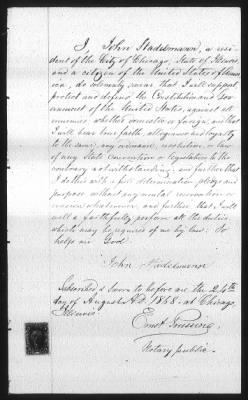 I, John Stadelmann, a resi-
dent of the City of Chicago, State of Illinois
and a citizen of the United States of Amer-
ica, do solemnly swear that I will support
protect and defend the Constitution and Gov-
ernment of the United States, against all
enemies, whether domestic or foreign, and that
I will bear true faith, allegiance and loyalty
to the same, any ordinance, resolution, or law
of any State Convention or Legislature to the
contrary notwithstanding; and further that
I do this with a full determination, pledge and
purpose without any mental reservation or
evasion whatsoever; and further that I will
well & faithfully perform all the duties
which may be required of me by law: So
help me God
John Stadelmann
Subscribed & sworn to before me the 24th
day of August A.D. 1868. at Chicago,
Illinois
Ernst Prussing
Notary public.